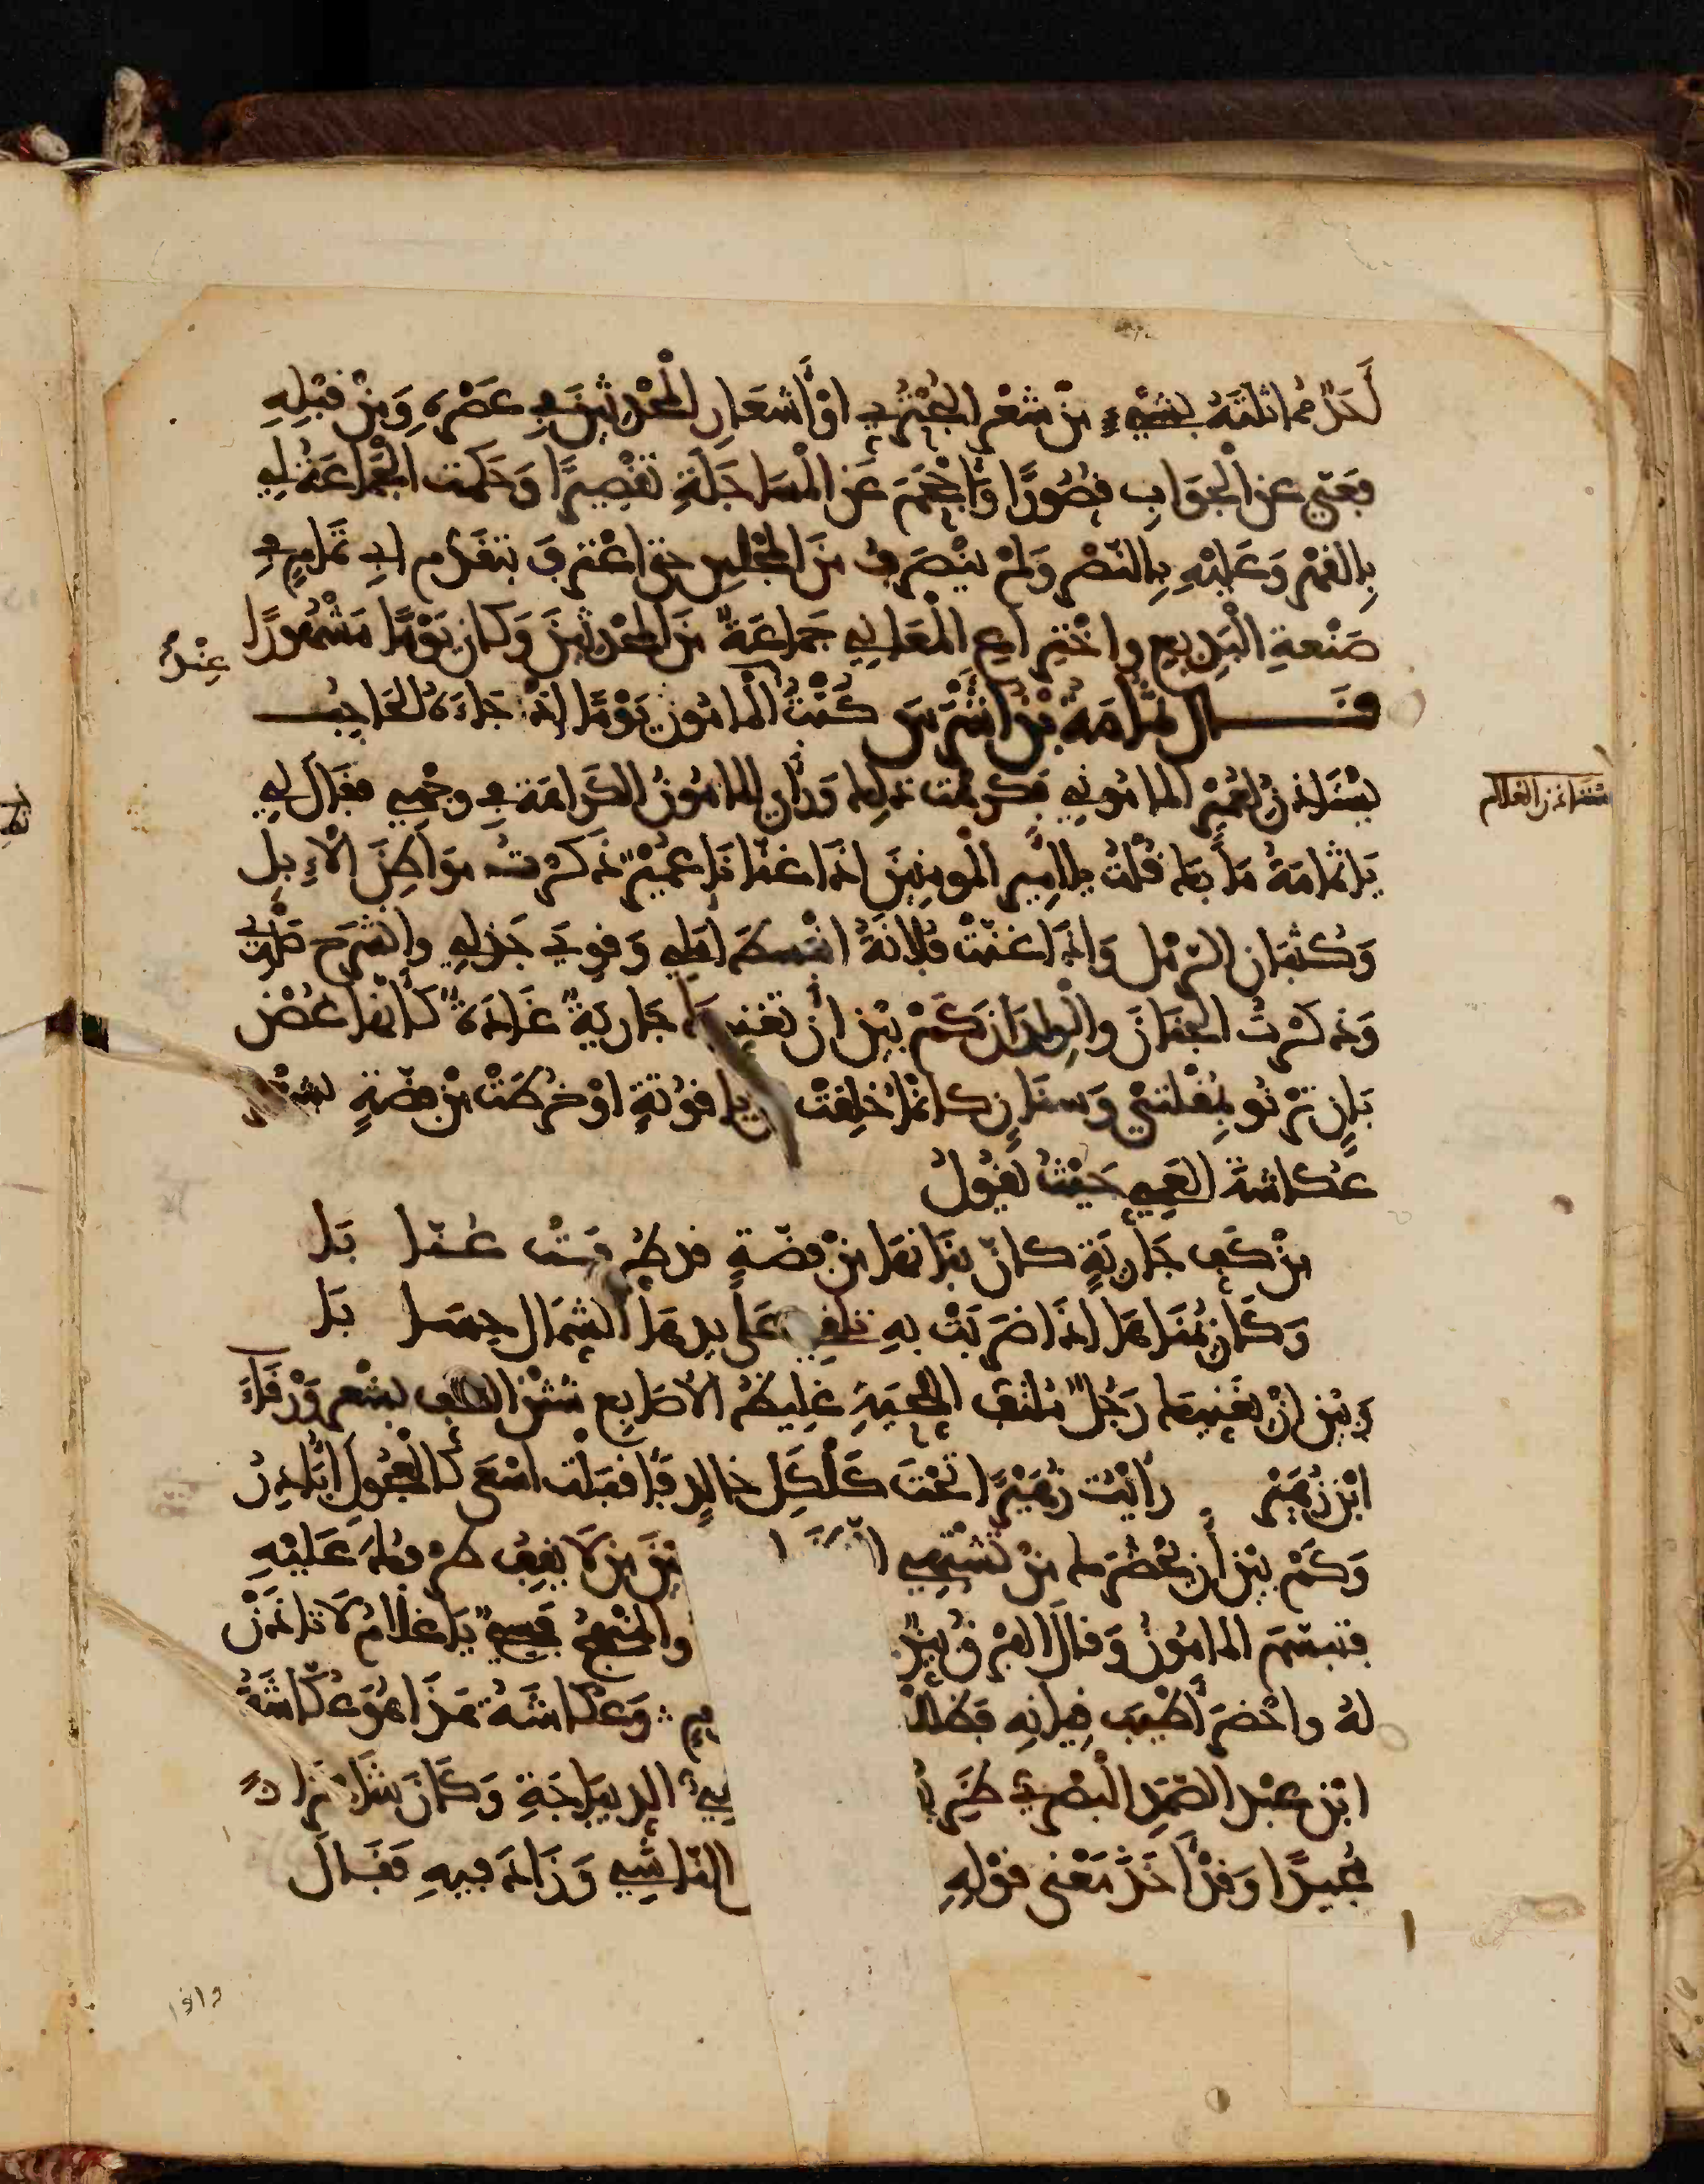 أحد مماثلته بشيء من شعر البحتري او أشعار المحدثين في عصره ومن قبله
فعيي عن الجواب قصورًا وأحجم عن المساجلة تقصيرًا وحكمت الجماعة لي
بالقهر وعليه بالنصر ولم ينصرف من المجلس حتى اعترف بتقدم ابي تمام في
صنعة البديع واختراع المعاني جماعةٌ من المحدثين وكان يومًا مشهورًا
قال ثمامة بن اشرس كنت عند المامون يومًا اذ جاءه الحاجب
يستاذن لعمير الماموني فكرهت ذلك ورأى المامون الكراهة في وجهي فقال لي
يا ثمامة ما بك قلت يا امير المومنين اذا غنا نا عمير ذكرت مواطن الإبل
وكثبان الرمل واذا غنت فلانة انبسط املي وقوي جذلي وانشرح صدري
وذكرت الجنان والولدان كم بين ان تغنيك جارية غادة كأنها غصن
بان ترنو بمقلتي وسنان كانما خلقت من ياقوتة او خرطت من فضة بشعر
عكاشة العمي حيث يقول
من كف جارية كان بنانها من فضة قد طرفت عنا با
وكأن يمناها اذا ضربت به تلقي على يدها الشمال حسا با
وبين ان يغنيك رجل ملتف اللحية غليظ الاصابع شثن الكف بشعر ورقاء
ابن زهير رأيت زهيرًا تحت كلكل خالد فأقبلت اسعى كالعجول أبادر
وكم بين أن يحضرك من تشتهي ا بين من لا يقف طرفك عليه
فتبسم المامون وقال الفرق بين والمنهج فسيح يا غلام لا تاذن
له واحضر أطيب قيانه فظللنا يوم وعكاشة هذا هو عكاشة
ابن عبد الصمد البصري الديباجة وكان شاعرًا
مجيدًا وقد أخذ معنى قوله الناشي وزاد فيه فقال
عنده
استاذن الغلام